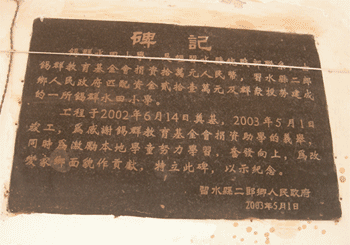 碑記
錫群教育基金會捐資拾萬元人民幣，習水縣二郎
鄉人民政府匹配資金貳拾壹萬元及群衆投勞建成
的一所錫群水田小學。
工程于2002年6月14日奠基，2003年5月1日
竣工，爲感謝錫群教育基金會捐資助學的義舉，
同時爲激勵本地學童努力學習，奮發向上，爲改
變家鄉面貌作貢獻，特立此碑，以示紀念。
習水縣二郎鄉人民政府
2003年5月1日